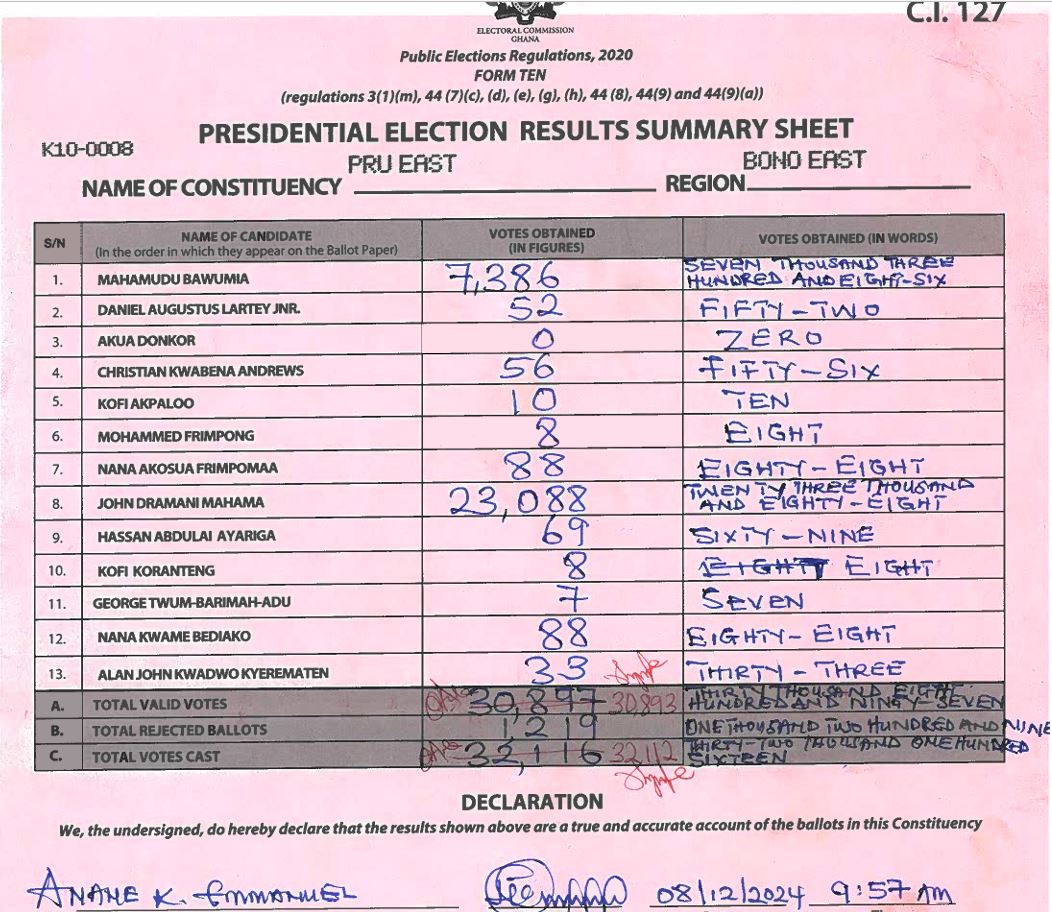 C.I. 127
ELECTORAL COMMISSION
GHANA
Public Elections Regulations, 2020
FORM TEN
(regulations 3(1)(m), 44 (7)(c), (d), (e), (g), (h), 44 (8), 44(9) and 44(9)(a))
PRESIDENTIAL ELECTION RESULTS SUMMARY SHEET
K10-0008
NAME OF CONSTITUENCY PRU EAST REGION BONO EAST
S/N NAME OF CANDIDATE (In the order in which they appear on the Ballot Paper) VOTES OBTAINED (IN FIGURES) VOTES OBTAINED (IN WORDS)
1. MAHAMUDU BAWUMIA 7,386 SEVEN THOUSAND THREE HUNDRED AND EIGHT-SIX
2. DANIEL AUGUSTUS LARTEY JNR. 52 FIFTY-TWO
3. AKUA DONKOR 0 ZERO
4. CHRISTIAN KWABENA ANDREWS 56 FIFTY-SIX
5. KOFI AKPALOO 10 TEN
6. MOHAMMED FRIMPONG 8 EIGHT
7. NANA AKOSUA FRIMPOMAA 88 EIGHTY-EIGHT
8. JOHN DRAMANI MAHAMA 23,088 TWENTY THREE THOUSAND AND EIGHTY-EIGHT
9. HASSAN ABDULAI AYARIGA 69 SIXTY-NINE
10. KOFI KORANTENG 8 EIGHTY EIGHT
11. GEORGE TWUM-BARIMAH-ADU 7 SEVEN
12. NANA KWAME BEDIAKO 88 EIGHTY-EIGHT
13. ALAN JOHN KWADWO KYEREMATEN 33 THIRTY-THREE
A. TOTAL VALID VOTES 30,897 30,893 THIRTY THOUSAND EIGHT HUNDRED AND NINETY-SEVEN
B. TOTAL REJECTED BALLOTS 1,219 ONE THOUSAND TWO HUNDRED AND NINE
C. TOTAL VOTES CAST 32,116 32,112 THIRTY-TWO THOUSAND ONE HUNDRED SIXTEEN
DECLARATION
We, the undersigned, do hereby declare that the results shown above are a true and accurate account of the ballots in this Constituency
ANANE K. EMMANUEL 08/12/2024 9:57 AM